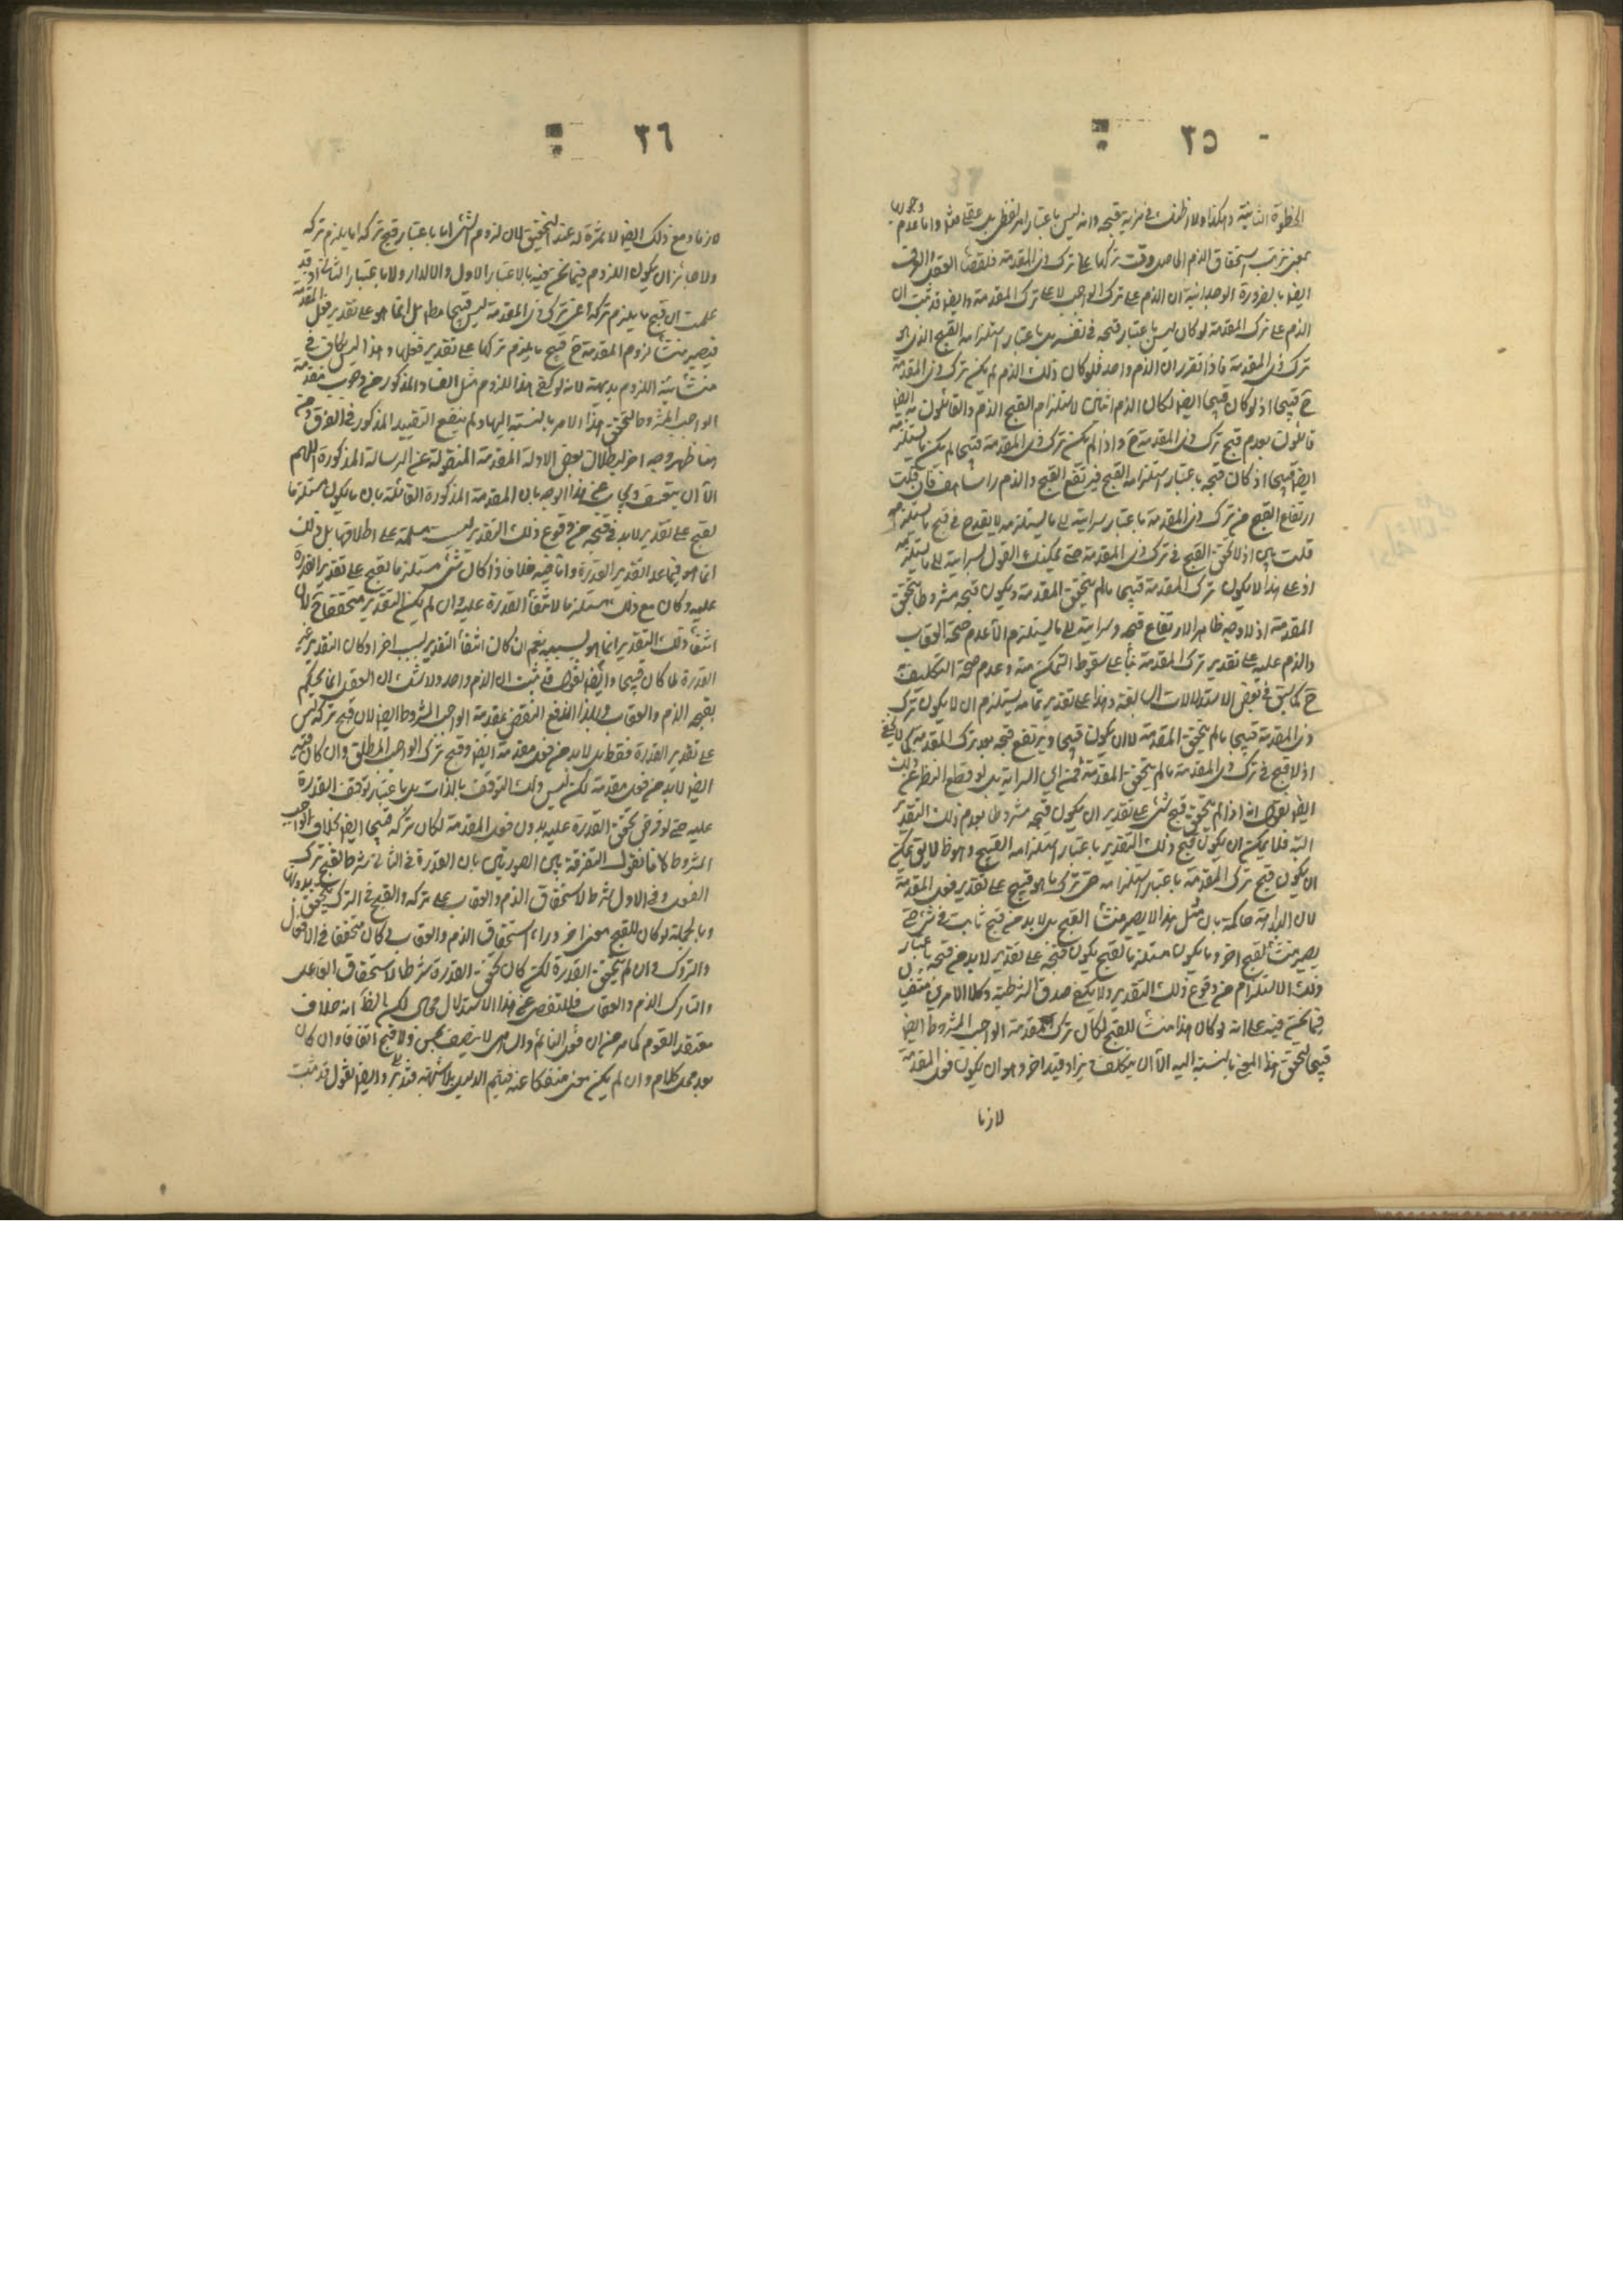 ٣٥
الخطوة الثانية وهكذا ولا اظنك في مرية بقبحه وانه ليس باعتبار امر لفظي بل عقلي وجداني واما عدم
بمعنى ترتب استحقاق الذم الحاصل وقت تركها على ترك ذي المقدمة فلقضاء العقل والعرف
ايضا بالضرورة الوجدانية ان الذم على ترك الواجب لا على ترك المقدمة وايضا قد ثبت ان
الذم على ترك المقدمة لو كان ليس باعتبار قبحه في نفسه بل باعتبار استلزامه القبح الذي هو
ترك ذي المقدمة فاذا تقرر ان الذم واحد فلو كان ذلك الذم لم يكن ترك ذي المقدمة
ح قبيحا اذ لو كان قبيحا ايضا لكان الذم اثنين لاستلزام القبح الذم والقائلون به ايضا
قائلون بعدم قبح ترك ذي المقدمة ح واذا لم يكن ترك ذي المقدمة قبيحا لم يكن ما يستلزمه
ايضا قبيحا اذ كان قبحه باعتبار استلزامه القبح فيرتفع القبح والذم راسا هف فان قلت
ارتفاع القبح من ترك ذي المقدمة باعتبار سرايته الى ما يستلزمه لا يقدح في قبح ما يستلزمه
قلت بلى اذ لا تحقق القبح في ترك ذي المقدمة حتى يمكنك القول بسرايته الى ما يستلزمه
اذ على هذا لا يكون ترك المقدمة قبيحا ما لم يتحقق المقدمة ويكون قبحه مشروطا بتحقق
المقدمة اذ لا وجه ظاهرا لارتفاع قبحه وسرايته الى ما يستلزم الا عدم صحة العقاب
والذم عليه على تقدير ترك المقدمة بناء على سقوط التمكن منه وعدم صحة التكليف
ح كما سبق في بعض الاستدلالات السابقة وهذا على تقدير تمامه يستلزم ان لا يكون ترك
ذي المقدمة قبيحا ما لم يتحقق المقدمة لا ان يكون قبيحا ويرتفع قبحه بعد ترك المقدمة كما لا يخفى
اذ لا قبح في ترك ذي المقدمة ما لم يتحقق المقدمة فمن اين السراية بل لو قطع النظر عن ذلك
ايضا نقول انه اذا لم يتحقق قبح شئ على تقدير ان يكون قبحه مشروطا بعدم ذلك التقدير
البتة فلا يمكن ان يكون قبح ذلك التقدير باعتبار استلزامه القبيح وهو ظ فلا يمكن
ان يكون قبح ترك المقدمة باعتبار استلزامه حتى ترك ما هو قبيح على تقدير فعل المقدمة
لان البداهة حاكمة بان مثل هذا لا يصير منشأ القبح بل لا بد من قبح ثابت في شئ حتى
يصير منشأ لقبح اخر وما يكون مستلزما لقبح يكون قبحه على تقدير لا بد من قبحه باعتبار
ذلك الاستلزام من وقوع ذلك التقدير ولا يكفي صدق الشرطية وكلا الامرين منتف
فيما نحن فيه على انه لو كان هذا منشأ للقبح لكان ترك مقدمة الواجب المشروط ايضا
قبيحا لتحقق هذا المعنى بالنسبة اليه الا ان يتكلف ويزاد قيد اخر وهو ان يكون فعل المقدمة
لازما
٣٦
لازما ومع ذلك ايضا لا ثمرة له عند التحقيق لان لزوم الشئ اما باعتبار قبح تركه او ما يلزم تركه
ولا جائز ان يكون اللزوم فيما نحن فيه بالاعتبار الاول والا لدار ولا باعتبار الثاني اذ قد
علمت ان قبح ما يلزم تركه اعني ترك ذي المقدمة ليس قبيحا مط بل انما هو على تقدير فعل المقدمة
فيصير منشأ لزوم المقدمة ح قبح ما يلزم تركها على تقدير فعلها وهذا ليس بكاف في
منشأية اللزوم بديهة لانه لو كفى هذا اللزوم مثل الفساد المذكور من وجوب مقدمة
الواجب المشروط لتحقق هذا الامر بالنسبة اليها ولم ينفع التقييد المذكور في الفرق ومن
هنا ظهر وجه اخر لبطلان بعض الادلة المقدمة المنقولة عن الرسالة المذكورة اللهم
الا ان يتعسف ويجاب عن هذا الوجه بان المقدمة المذكورة القائلة بان ما يكون مستلزما
لقبح على تقدير لا بد في قبحه من وقوع ذلك التقدير ليست مسلمة على اطلاقها بل ذلك
انما هو فيما عدا تقدير القدرة واما فيه فلا فاذا كان شئ مستلزما لقبح على تقدير القدرة
عليه وكان مع ذلك مستلزما لانتفاء القدرة عليه وان لم يكن التقدير متحققا ح لان
انتفاء ذلك التقدير انما هو بسببه نعم ان كان انتفاء التقدير بسبب اخر او كان التقدير غير
القدرة لما كان قبيحا وايضا نقول قد ثبت ان الذم واحد ولا شك ان العقل انما يحكم
بقبحه الذم والعقاب وبهذا اندفع النقض بمقدمة الواجب المشروط ايضا لان قبح تركه ليس
على تقدير القدرة فقط بل لا بد من فعل مقدمة ايضا وقبح ترك الواجب المطلق وان كان فيه
ايضا لا بد من فعل مقدمة لكن ليس ذلك التوقف بالذات بل باعتبار توقف القدرة
عليه حتى لو فرض تحقق القدرة عليه بدون فعل المقدمة لكان تركه قبيحا ايضا بخلاف الواجب
المشروط لانا نقول التفرقة بين الصورتين بان القدرة في الثاني شرط لقبح ترك
الفعل وفي الاول شرط لاستحقاق الذم والعقاب على تركه والقبح في الترك يتحقق بدونها
وبالجملة لو كان للقبح معنى اخر وراء استحقاق الذم والعقاب كان متحققا في الافعال
والتروك وان لم يتحقق القدرة لكن كان تحقق القدرة شرطا لاستحقاق الفاعل
والتارك الذم والعقاب فللتفصي عن هذا الاستدلال مجال لكن الظ انه خلاف
معتقد القوم كما مر من ان فعل النائم والساهي لا يتصف بحسن ولا قبح اتفاقا وان كان
بعد محل كلام وان لم يكن معنى منفكا عنه فيتم الدليل بلا شبهة فتدبر وايضا نقول قد ثبت